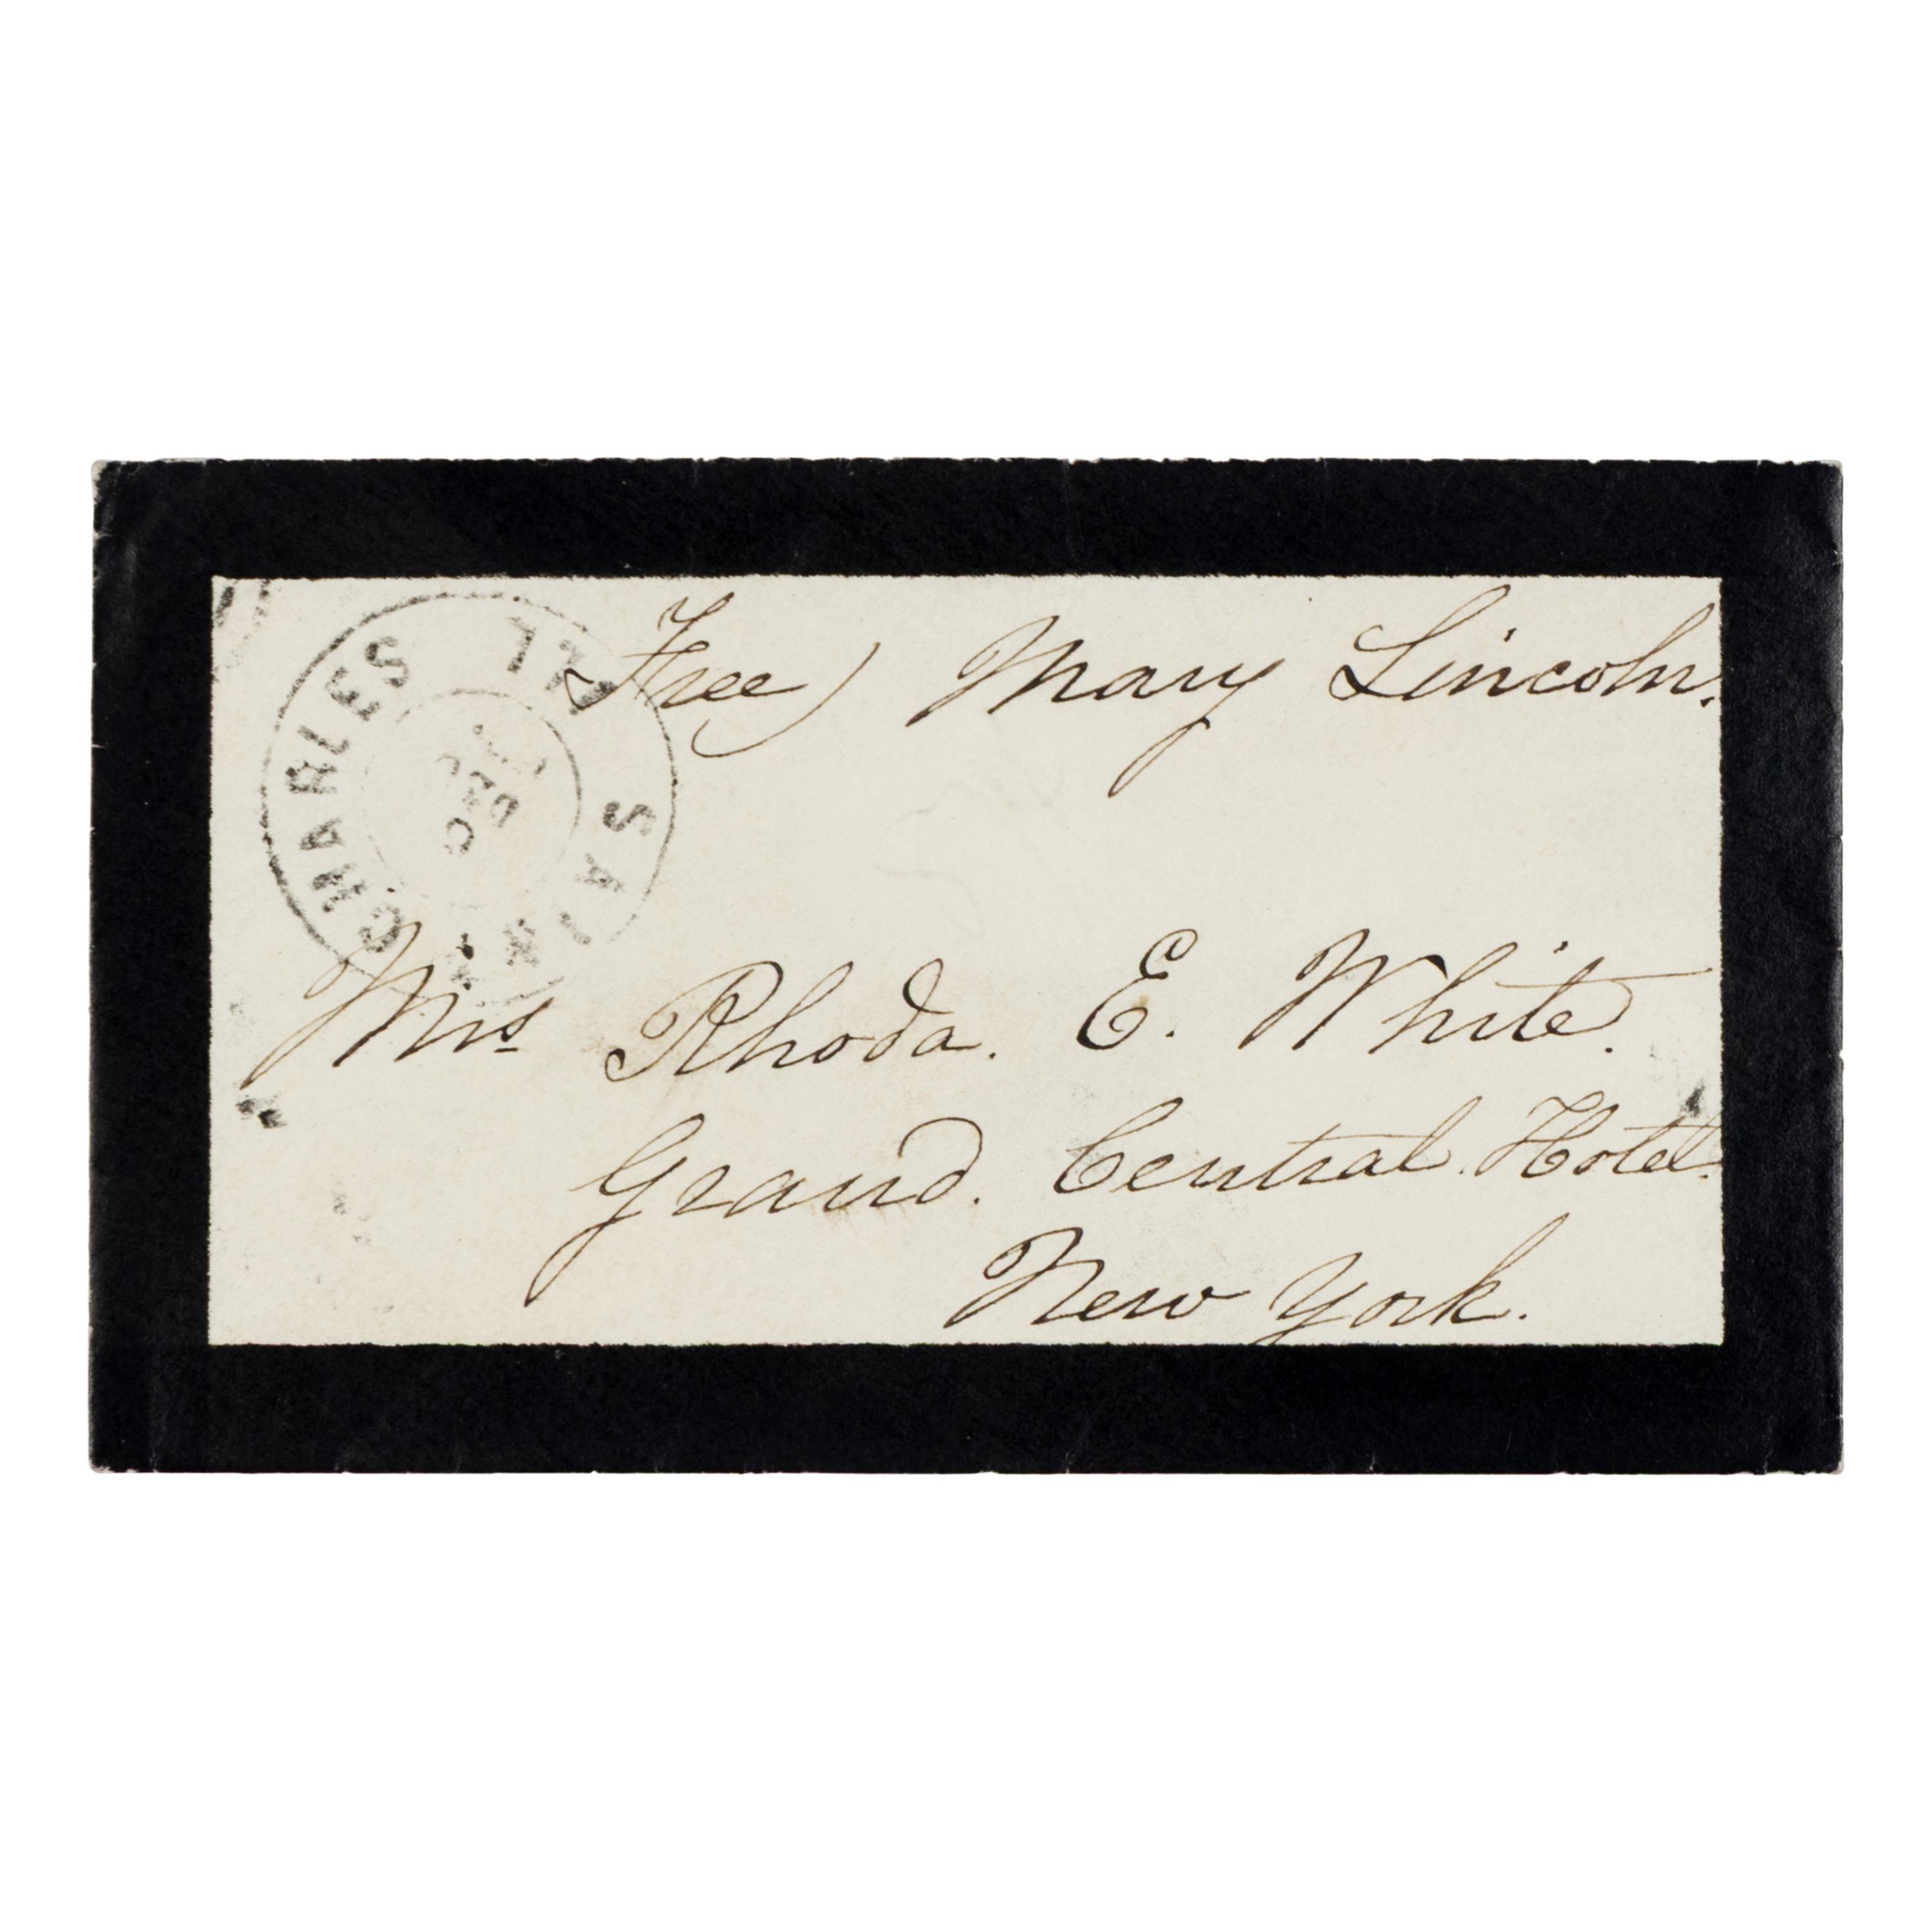 Free) Mary Lincoln.
SAINT CHARLES ILL
DEC
Mrs Rhoda. E. White.
Grand. Central. Hotel.
New York.